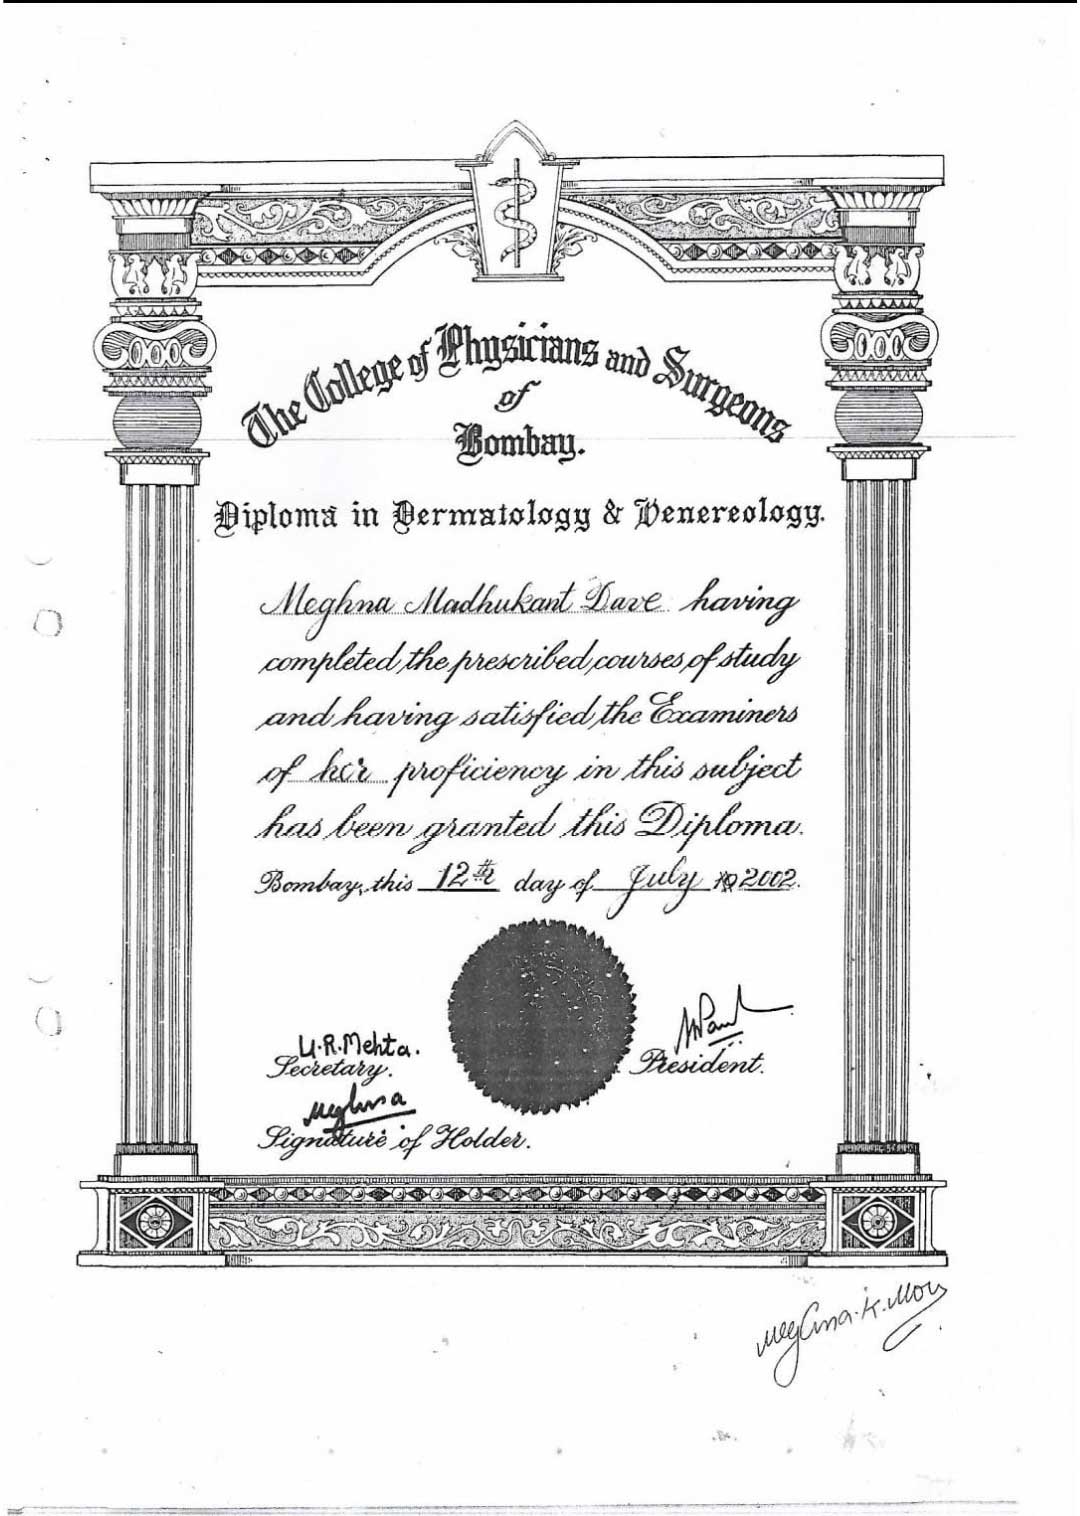 The College of Physicians and Surgeons
of
Bombay.
Diploma in Dermatology & Venereology.
Meghna Madhukant Dave having
completed the prescribed courses of study
and having satisfied the Examiners
of her proficiency in this subject
has been granted this Diploma.
Bombay, this 12th day of July 2002.
U.R.Mehta.
Secretary.
President.
Meghna
Signature of Holder.
Meghna.K.